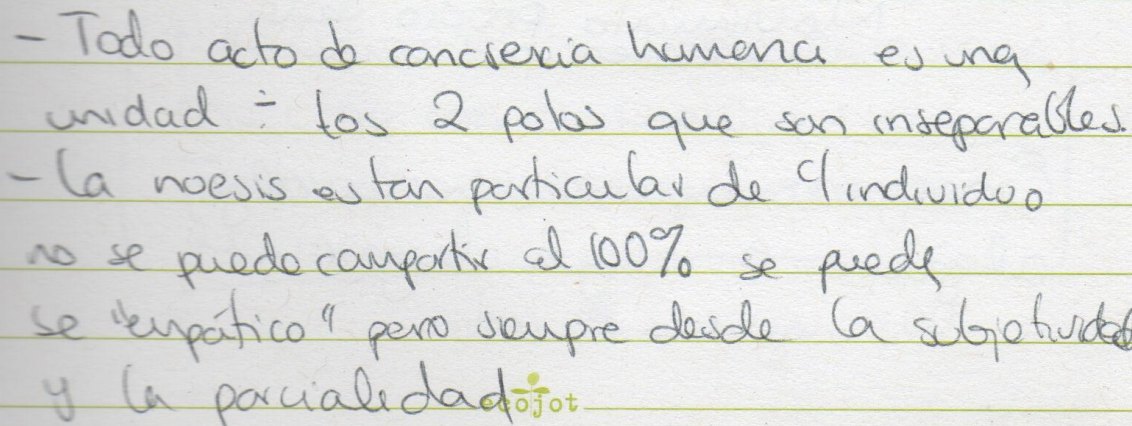 - Todo acto de conciencia humana es una
unidad ÷ los 2 polos que son inseparables.
- La noesis es tan particular de c/individuo
no se puede compartir al 100% se puede
se "empático" pero siempre desde la subjetividad
y la parcialidad
ecojot